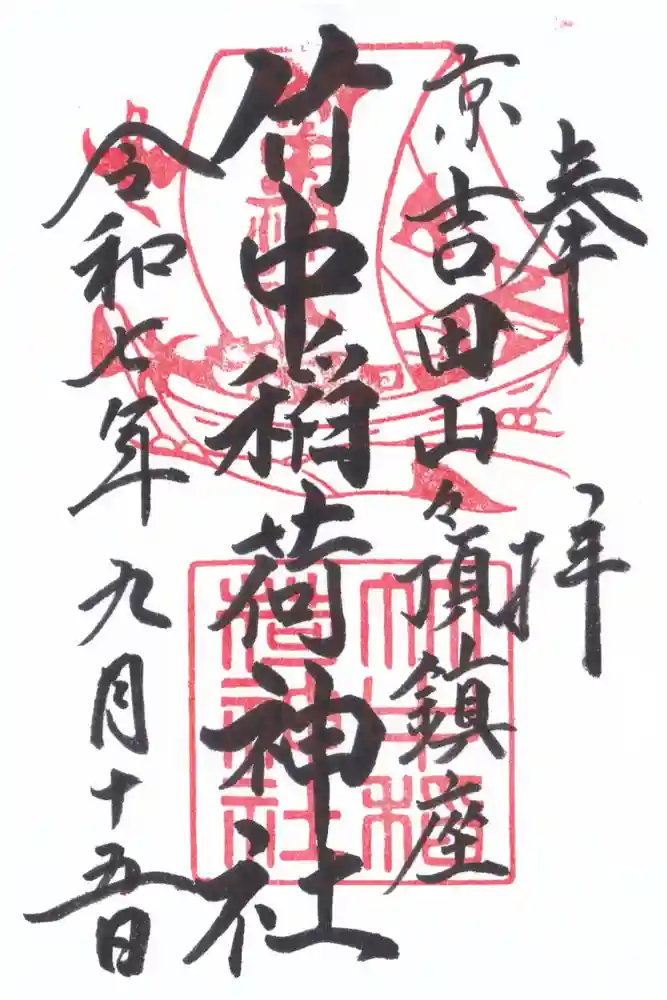 奉拝
京吉田山々頂鎮座
竹中稲荷神社
令和七年九月十五日
竹中稲荷神社